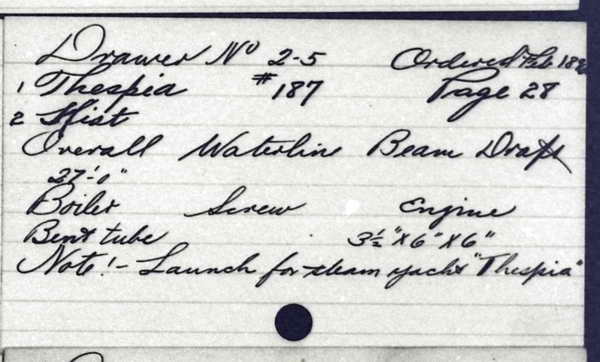 Drawer No 2-5 Ordered Feb 189
1 Thespia #187 Page 28
2 Hist
Overall Waterline Beam Draft
27'-0"
Boiler Screw Engine
Bent tube 3½"x6"x6"
Note!- Launch for steam yacht "Thespia"